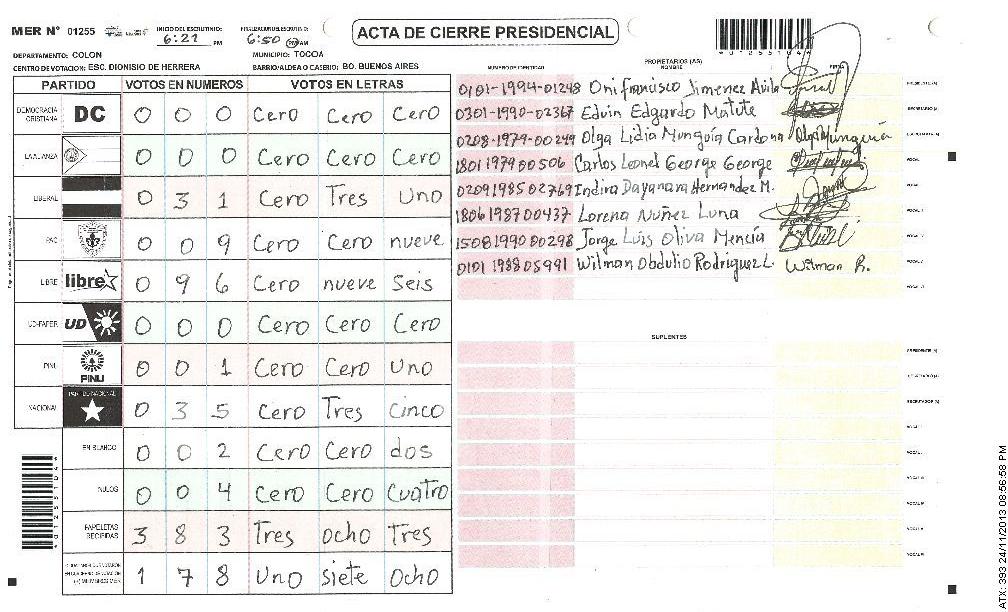 MER Nº 01255
INICIO DEL ESCRUTINIO: 6:21 PM
FINALIZACION DEL ESCRUTINIO: 6:50 PM AM
ACTA DE CIERRE PRESIDENCIAL
DEPARTAMENTO: COLON
MUNICIPIO: TOCOA
CENTRO DE VOTACION: ESC. DIONISIO DE HERRERA
BARRIO/ALDEA O CASERIO: BO. BUENOS AIRES
PARTIDO VOTOS EN NUMEROS VOTOS EN LETRAS
DEMOCRACIA CRISTIANA DC 0 0 0 Cero Cero Cero
LA ALIANZA 0 0 0 Cero Cero Cero
LIBERAL 0 3 1 Cero Tres Uno
PAC 0 0 9 Cero Cero nueve
LIBRE libre 0 9 6 Cero nueve Seis
UD-FAPER UD 0 0 0 Cero Cero Cero
PINU PINU 0 0 1 Cero Cero Uno
NACIONAL PARTIDO NACIONAL 0 3 5 Cero Tres Cinco
EN BLANCO 0 0 2 Cero Cero dos
NULOS 0 0 4 Cero Cero Cuatro
PAPELETAS RECIBIDAS 3 8 3 Tres ocho Tres
1 7 8 Uno siete Ocho
NUMERO DE IDENTIDAD
PROPIETARIOS (AS)
NOMBRE
FIRMA
0101-1994-01248 Oni francisco Jimenez Avila PRESIDENTE (A)
0301-1990-02367 Edvin Edgardo Matute SECRETARIO (A)
0208-1979-00249 Olga Lidia Munguía Cardona Olga Munguía
1801 1979 00506 Carlos Leonel George George VOCAL
0209 1985 02769 Indira Dayanara Hernandez M.
1806 1987 00437 Lorena Nuñez Luna
1508 1990 00298 Jorge Luis Oliva Mencía
0101 1988 05991 Wilman Obdulio Rodriguez L. Wilman R.
SUPLENTES
PRESIDENTE (A)
ATX: 393 24/11/2013 08:56:58 PM